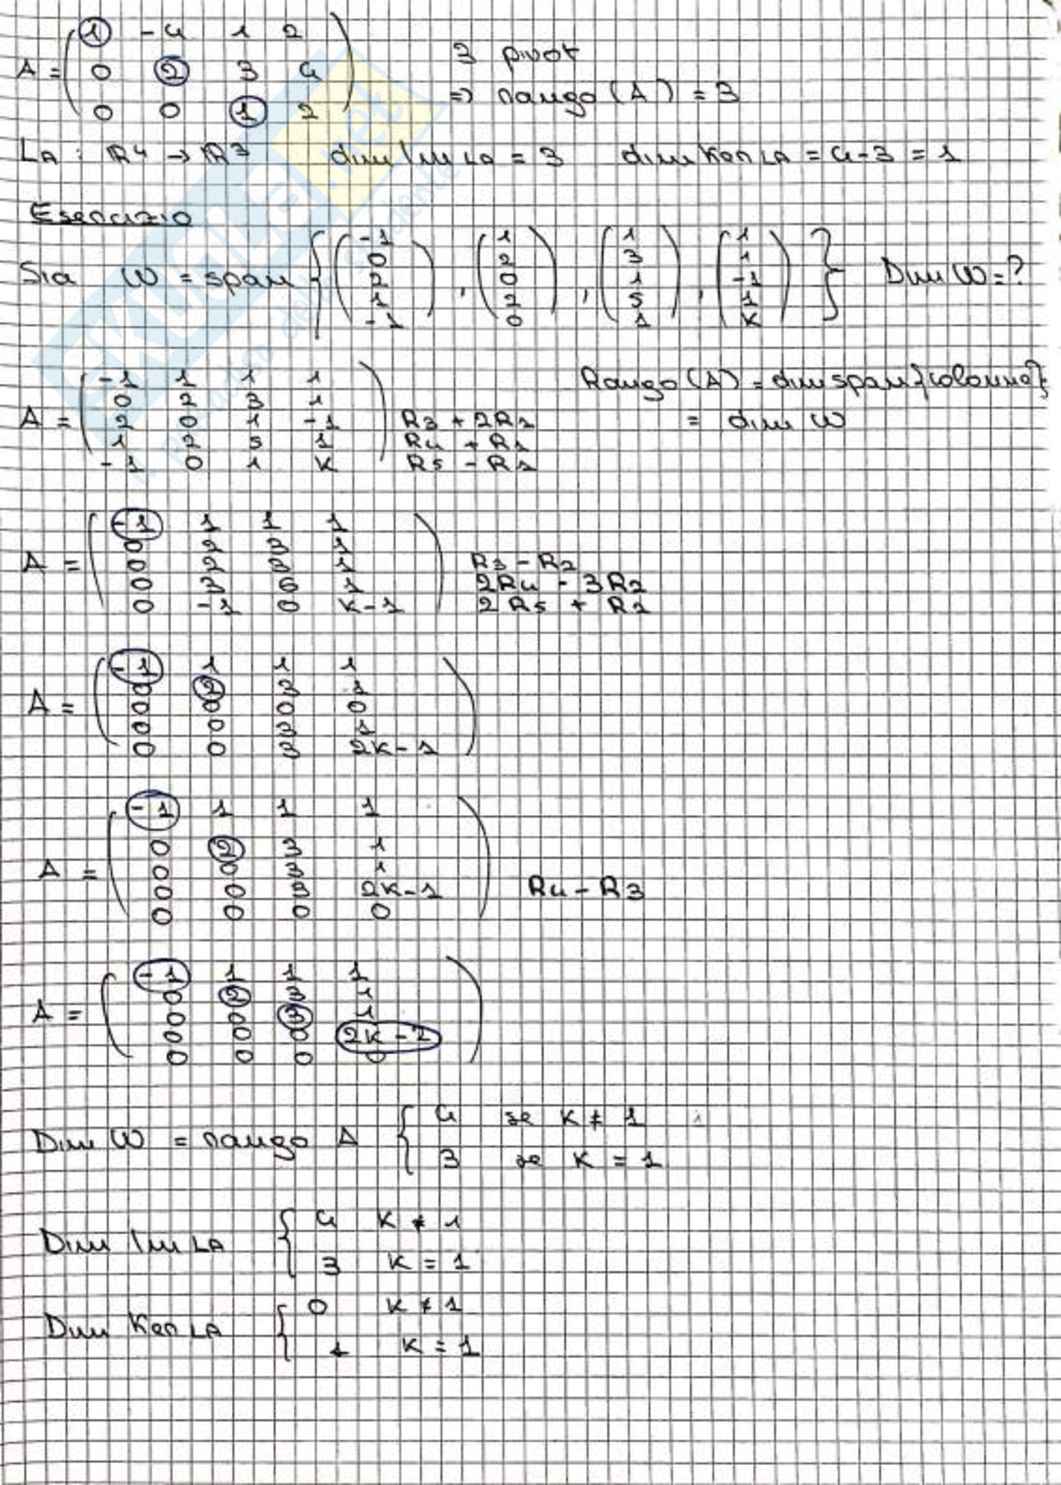 A = ( 1 -4 1 2
0 2 3 4
0 0 1 2 ) 3 pivot => rango (A) = 3
LA : R4 → R3 dim Im LA = 3 dim Ker LA = 4-3 = 1
Esercizio
Sia W = span { (-1 0 2 1 -1) , (1 2 0 2 0) , (1 3 1 5 1) , (1 1 -1 1 K) } Dim W = ?
A = ( -1 1 1 1
0 2 3 1
2 0 1 -1
1 2 5 1
-1 0 1 K ) R3 + 2R1 R4 + R1 R5 - R1
Rango (A) = dim span {colonne}
= dim W
A = ( -1 1 1 1
0 2 3 1
0 2 3 1
0 3 6 1
0 -1 0 K-1 ) R3 - R2 2R4 - 3R2 2R5 + R2
A = ( -1 1 1 1
0 2 3 1
0 0 0 0
0 0 3 1
0 0 3 2K-1 )
A = ( -1 1 1 1
0 2 3 1
0 0 3 1
0 0 3 2K-1
0 0 0 0 ) R4 - R3
A = ( -1 1 1 1
0 2 3 1
0 0 3 1
0 0 0 2K-2
0 0 0 0 )
Dim W = rango A { 4 se K ≠ 1
3 se K = 1
Dim Im LA { 4 K ≠ 1
3 K = 1
Dim Ker LA { 0 K ≠ 1
1 K = 1